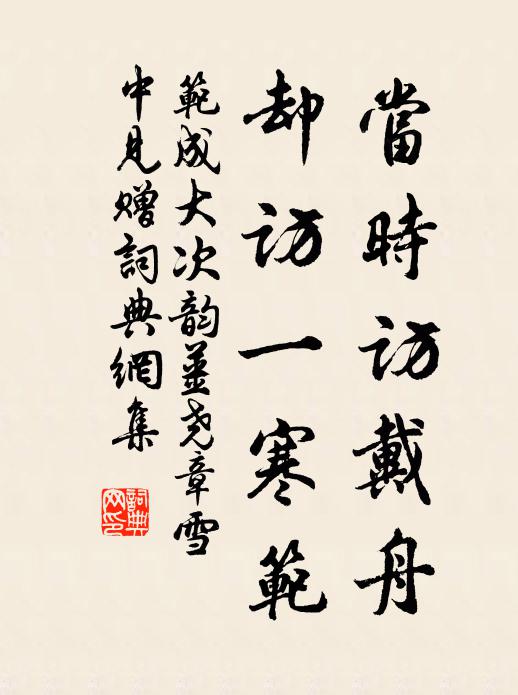 當時訪戴舟
却訪一寒範
範成大次韵薑尧章雪
中見贈詞典網集
詞典网印